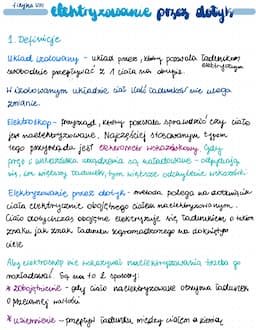 fizyka VIII
elektryzowanie przez dotyk
1. Definicje
Układ izolowany - układ przez, który pozwala ładunkom elektrycznym
swobodnie przepływać z 1 ciała na drugie.
W izolowanym układzie ciał ilość ładunków nie ulega
zmianie.
Elektroskop - przyrząd, który pozwala sprawdzić czy ciało
jest naelektryzowane. Najczęściej stosowanym typem
tego przyrządu jest elektrometr wskazówkowy. Gdy
pręt i wskazówka urządzenia są naładowane - odpychają
się, im większy ładunek, tym większe odchylenie wskazówki
Elektryzowanie przez dotyk - metoda polega na dotknięciu
ciała elektrycznie obojętnego ciałem naelektryzowanym.
Ciało dotychczas obojętne elektryzuje się, ładunkiem o takim
znaku jak znak ładunku zgromadzonego na dotkniętym
ciele
Aby elektroskop nie wskazywał naelektryzowania trzeba go
rozładować. Są na to 2 sposoby:
* zobojętnienie - gdy ciało naelektryzowane otrzyma ładunek
o przeciwnej wartości
* uziemienie - przepływ ładunku między ciałem a ziemią